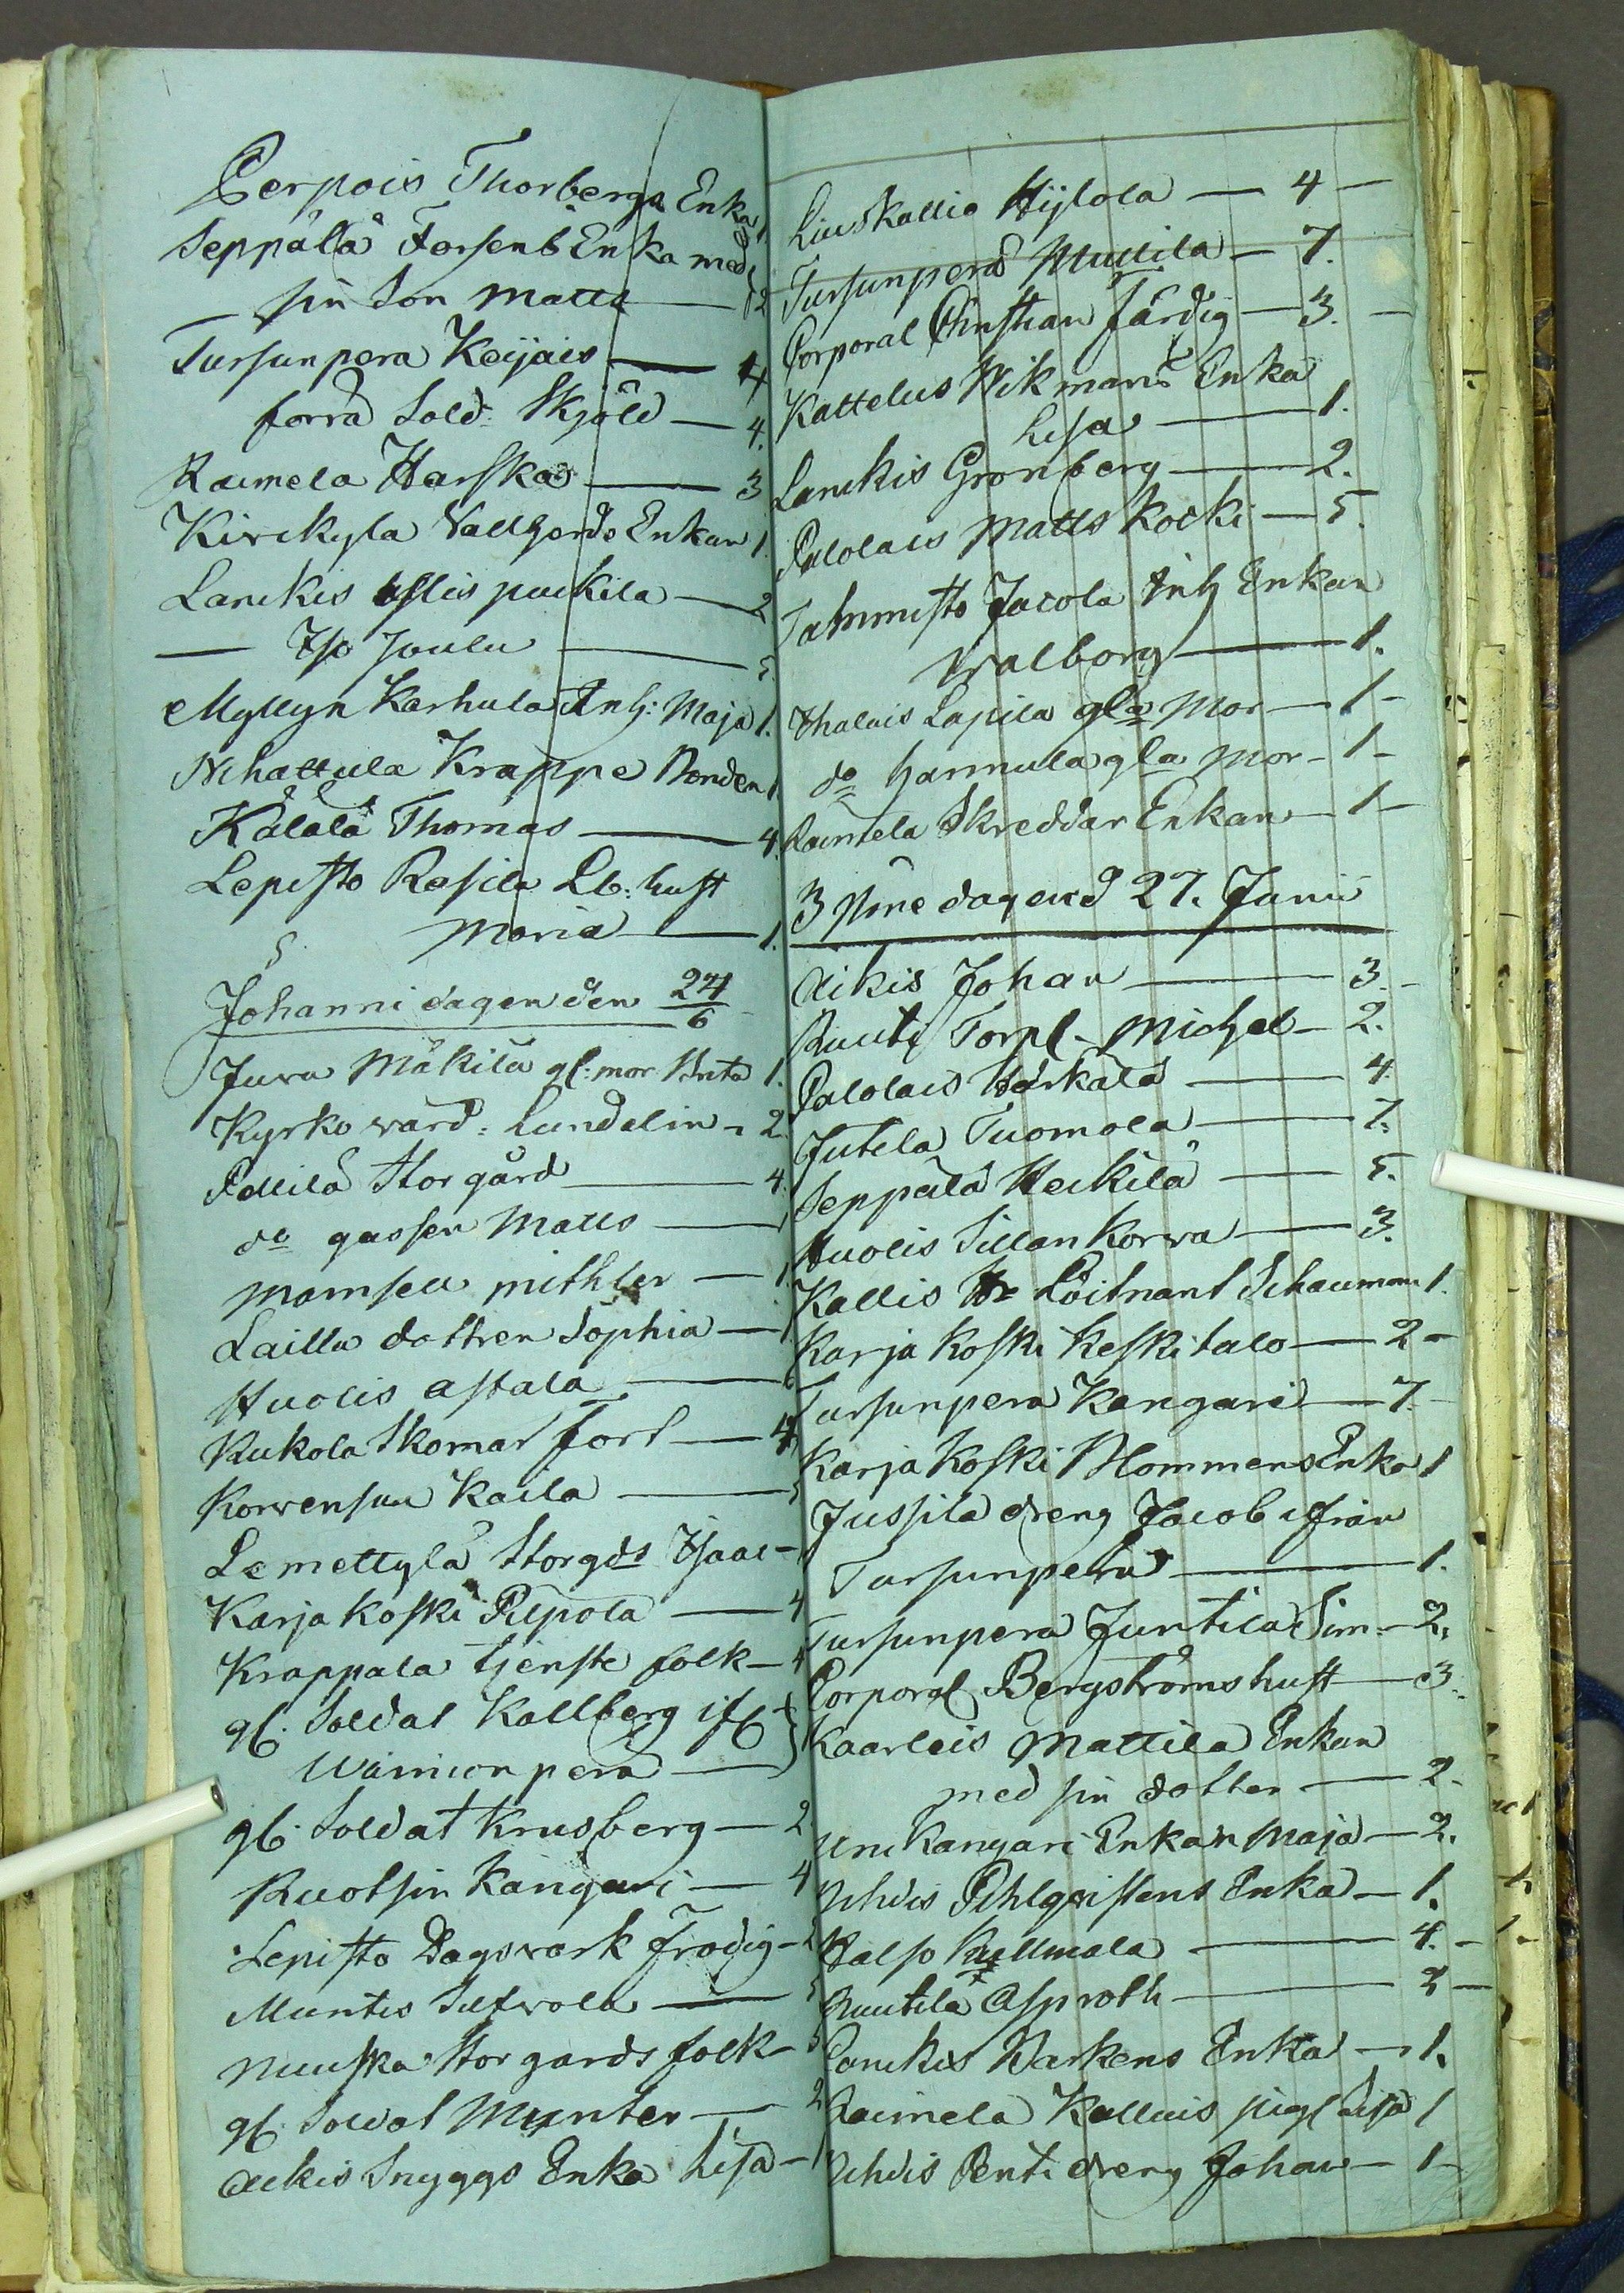 Perpois Thorbergs Enka 1.
Seppälä Forsenb Enka med
— sin Son Matts — 2
Tursunpera Keijais — 4
forra Sold: Skjöld — 4.
Raimela Harska — 3
Kirckyla Vallgords Enkan 1.
Lanckis puckila — 2
— Iso Joulu — 5.
Myllyn Karhula Inh: Maja 1.
Nihattula Krappe Bonden 1.
Kälälä Thomas — 4.
Lepisto Rasila Lb: hust
Maria — 1.
Johanni dagen den 24/6
Juva Mäkilä gl: mor Brita 1.
Kyrko vard: Lundelin — 2.
Pellilä Storgård — 4.
do gassen Matts — 1
Mamsell mithler — 1.
Lailla dottren Sophia — 1.
Huolis astala — 6
Kukola Skomar Fort — 4
Korvensuu Kaila — 5
Lemettylä Storgds Isaac —
Karjakoski Pilpola — 4
Krappala tjenste folk — 4
gl. Soldat Kallberg ifr
Wainionpera —
gl. Soldat Krusberg — 2
Ruotsin Kangari — 4
Lepisto Dagsvark Frodig — 2
Muntis Silfvola — 5
Nuuska Storgards folk — 5
gl. Soldat Munter — 2
Aikis Snyggs Enka Lisa — 1
Liuskallio Hijlola — 4 —
Tursunpera Mullila — 7.
Corporal Christian Färdig — 3. —
Kattelus Wikmans Enka
Lisa — 1.
Lanckis Gronberg — 2.
Palolais Matts Kocki — 5.
Tammisto Jacola Inh Enkan
Walborg — 1.
Ihalais Lapila gla Mor — 1 —
do hannula gla Mor — 1 —
Raimela Skreddar Enkan — 1 —
3 Böne dagen d 27. Junii
Aikis Johan — 3. —
Ruuti Torpl. Michel — 2.
Palolais Härkälä — 4.
Jutila Tuomola — 7.
Seppälä Heikilä — 5.
Huolis Sillankorva — 3.
Kallis Hr Löitnant Schauman 1.
Karja Koski Keskitalo — 2 —
Tursunpera Kangari — 7. —
Karja Koski Blommens Enka 1
Jussila dreng Jacob ifrån
Tursunpera — 1.
Tursunpera Juntila Sim. — 2.
Corporal Bergströms hust — 3.
Kaarleis Mattila Enkan
med sin dotter — 2.
Kangari Enkan Maja — 2.
Uhdis Pihlqvistens Enka — 1.
Kalso Kyllmälä — 4. —
Ruutila Asproth — 2 —
Lanckis Karkens Enka — 1.
Raimela Kalluis pigl Lisa 1
Uhdis Penti dreng Johan — 1